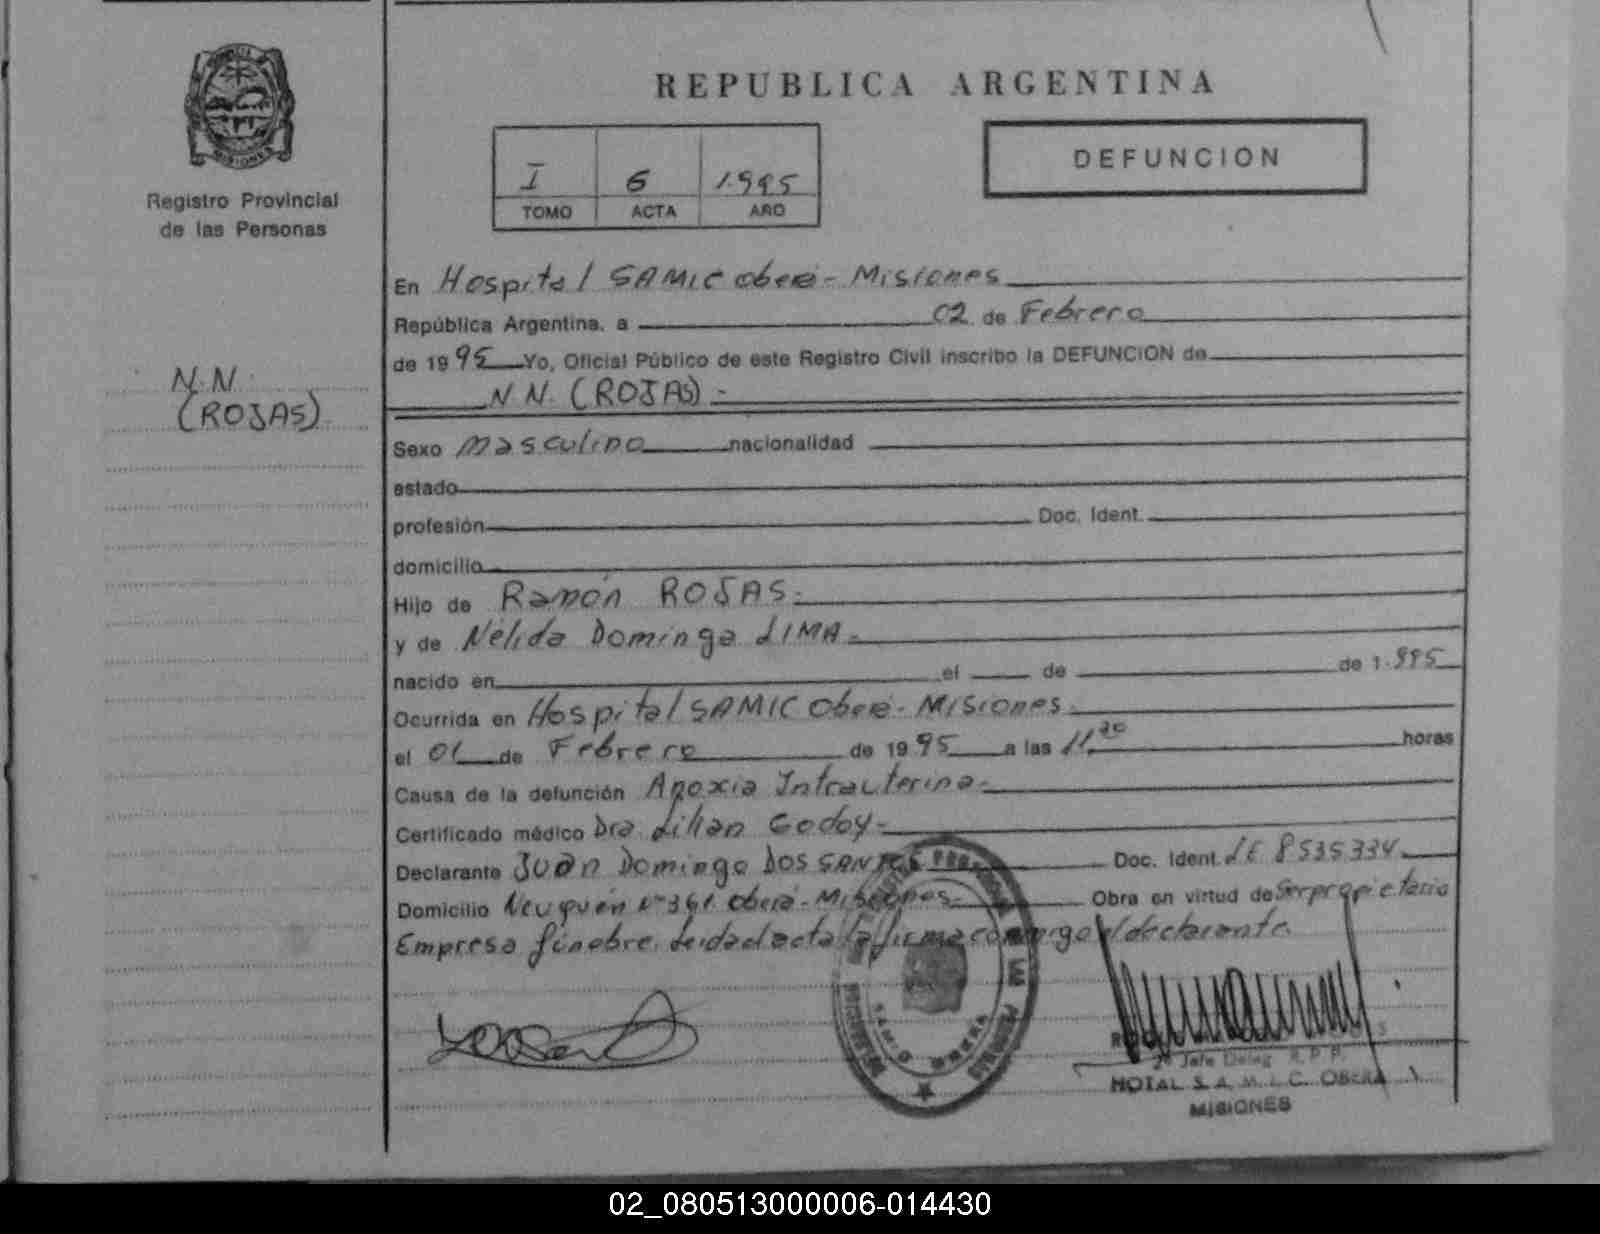 MISIONES
Registro Provincial
de las Personas
N.N.
(ROJAS)
REPUBLICA ARGENTINA
I 6 1.995
TOMO ACTA AÑO
DEFUNCION
En Hospital SAMIC Oberá - Misiones
República Argentina, a 02 de Febrero
de 1995 Yo, Oficial Público de este Registro Civil inscribo la DEFUNCION de
N.N. (ROJAS) -
Sexo Masculino nacionalidad
estado
profesión Doc. Ident.
domicilio
Hijo de Ramón ROJAS.-
y de Nélida Dominga LIMA.-
nacido en el de de 1.995
Ocurrida en Hospital SAMIC Oberá - Misiones.
el 01 de Febrero de 1995 a las 11 horas
Causa de la defunción Anoxia Intrauterina.-
Certificado médico Dra. Lilian Godoy.-
Declarante Juan Domingo DOS SANTOS Doc. Ident. LE 8535334
Domicilio Neuquén Nº 361 Oberá - Misiones.- Obra en virtud de Ser propietario
Empresa fúnebre. Leida el acta la firma conmigo el declarante.
2º Jefe Deleg. R.P.P.
HOTAL S.A.M.I.C. OBERA
MISIONES
02_080513000006-014430